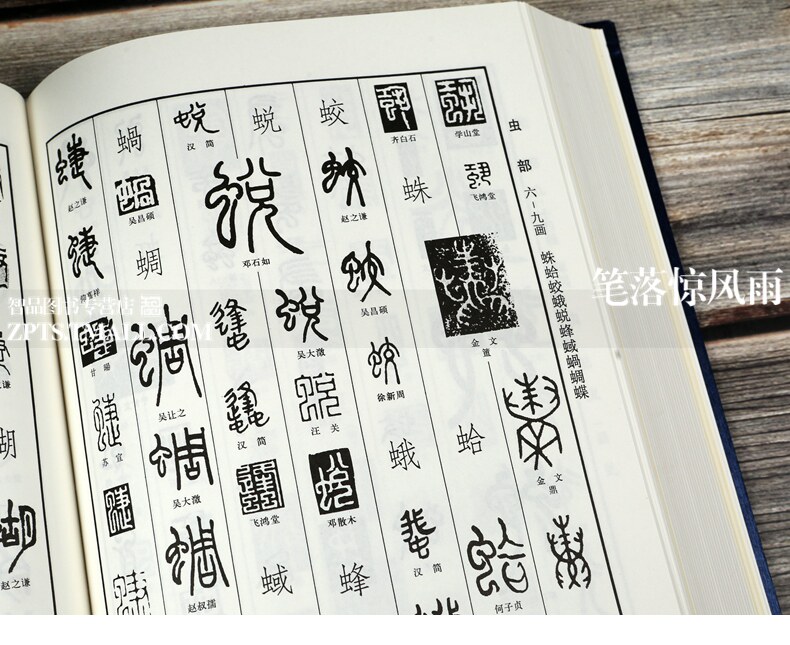 虫部 六-九画 蛛蛤蛟蛾蜕蜂蜮蝸蜩蝶
学山堂
飞鸿堂
金文
金文
鼎
齐白石
蛛
蛤
何子贞
蛟
赵之谦
吴昌硕
徐新周
蛾
汉简
蜕
吴大澂
汪关
邓散木
蜂
汉简
邓石如
汉简
飞鸿堂
蜮
蝸
吴昌硕
蜩
吴让之
吴大澂
赵叔孺
赵之谦
甘旸
苏宣
赵之谦
笔落惊风雨
智品图书专营店
ZPTS.TMALL.COM